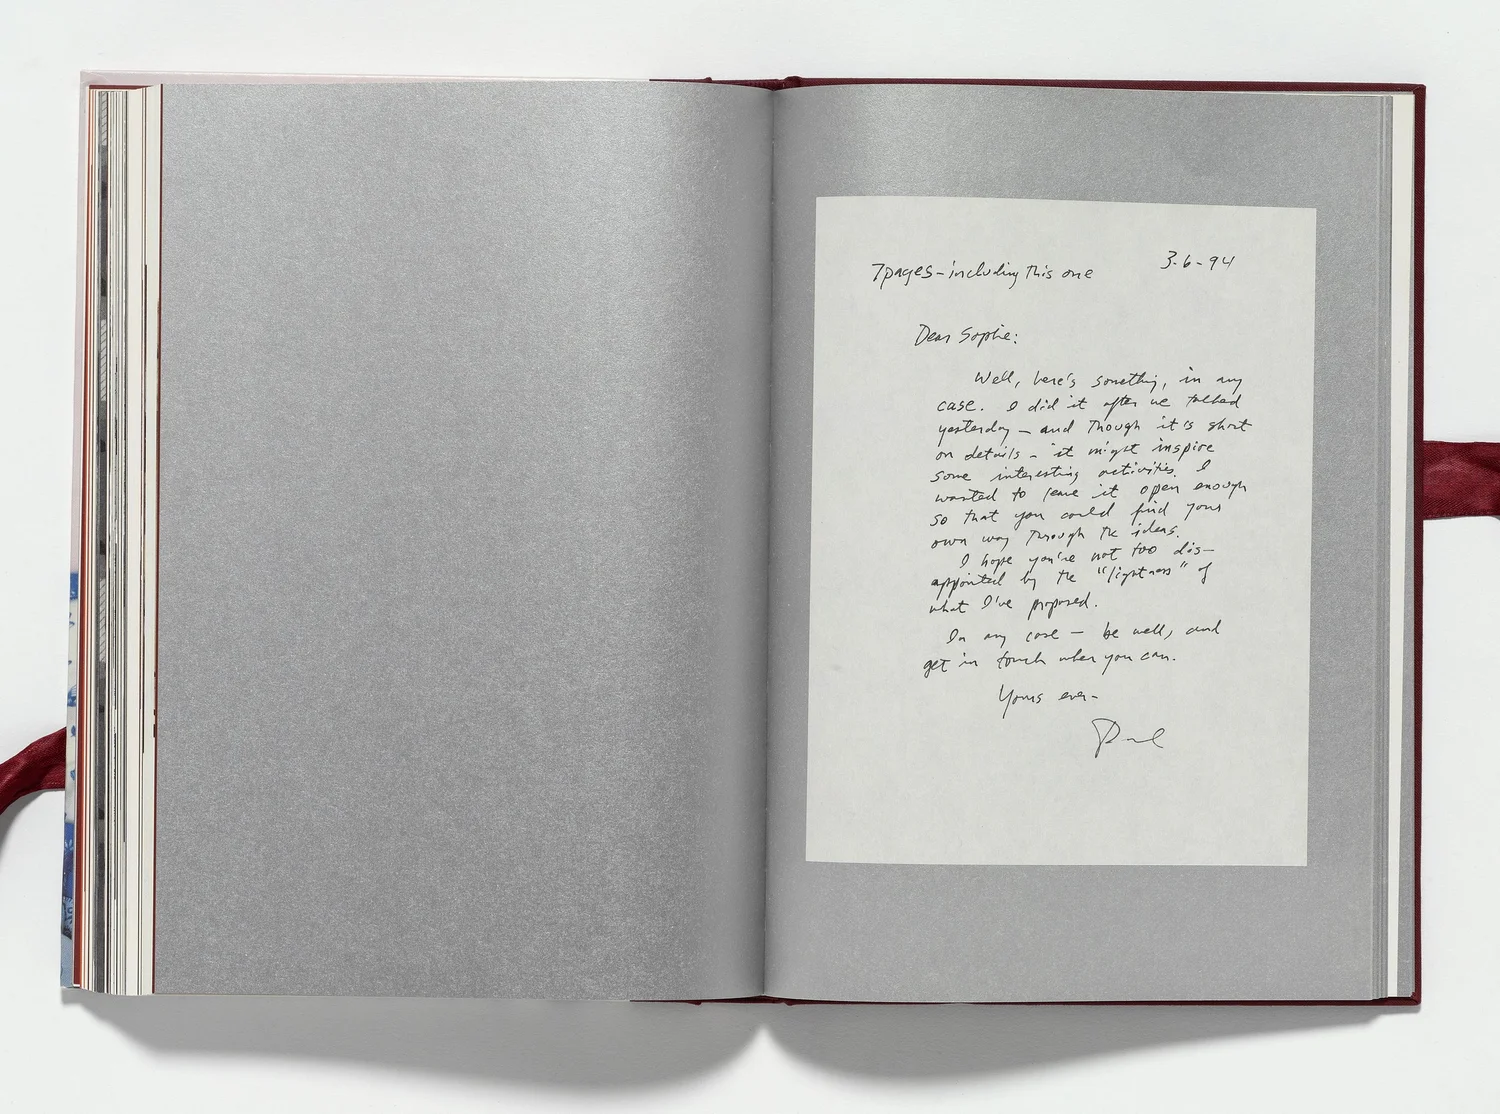 7 pages - including this one
3-6-94
Dear Sophie:
Well, here's something, in any
case. I did it after we talked
yesterday — and though it is short
on details — it might inspire
some interesting activities. I
wanted to leave it open enough
so that you could find your
own way through the ideas.
I hope you're not too dis-
appointed by the "lightness" of
what I've proposed.
In any case — be well, and
get in touch when you can.
Yours ever -
Paul